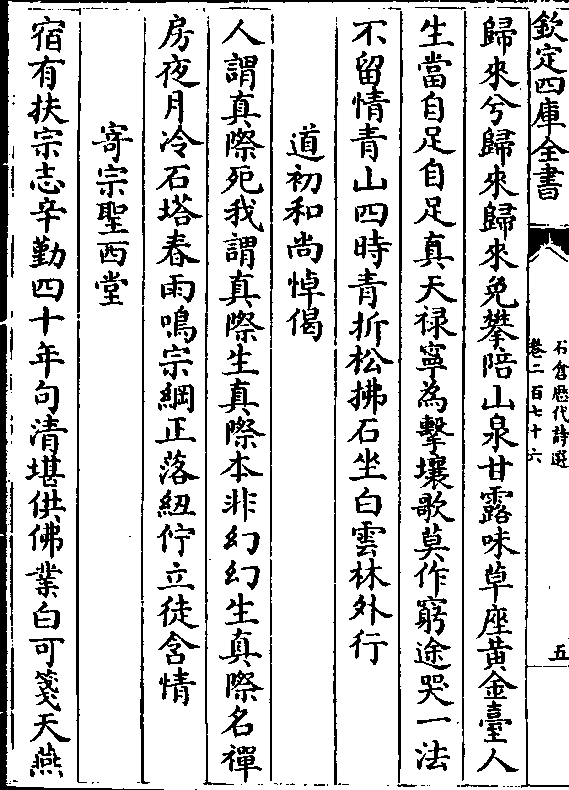 欽定四庫全書
石倉歷代詩選
卷二百七十六
五
歸來兮歸來歸來免攀陪山泉甘露味草座黃金臺人
生當自足自足真天禄寧為擊壤歌莫作窮途哭一法
不留情青山四時青折松拂石坐白雲林外行
道初和尚悼偈
人謂真際死我謂真際生真際本非幻幻生真際名禪
房夜月冷石塔春雨鳴宗綱正落紐佇立徒含情
寄宗聖西堂
宿有扶宗志辛勤四十年句清堪供佛業白可箋天燕